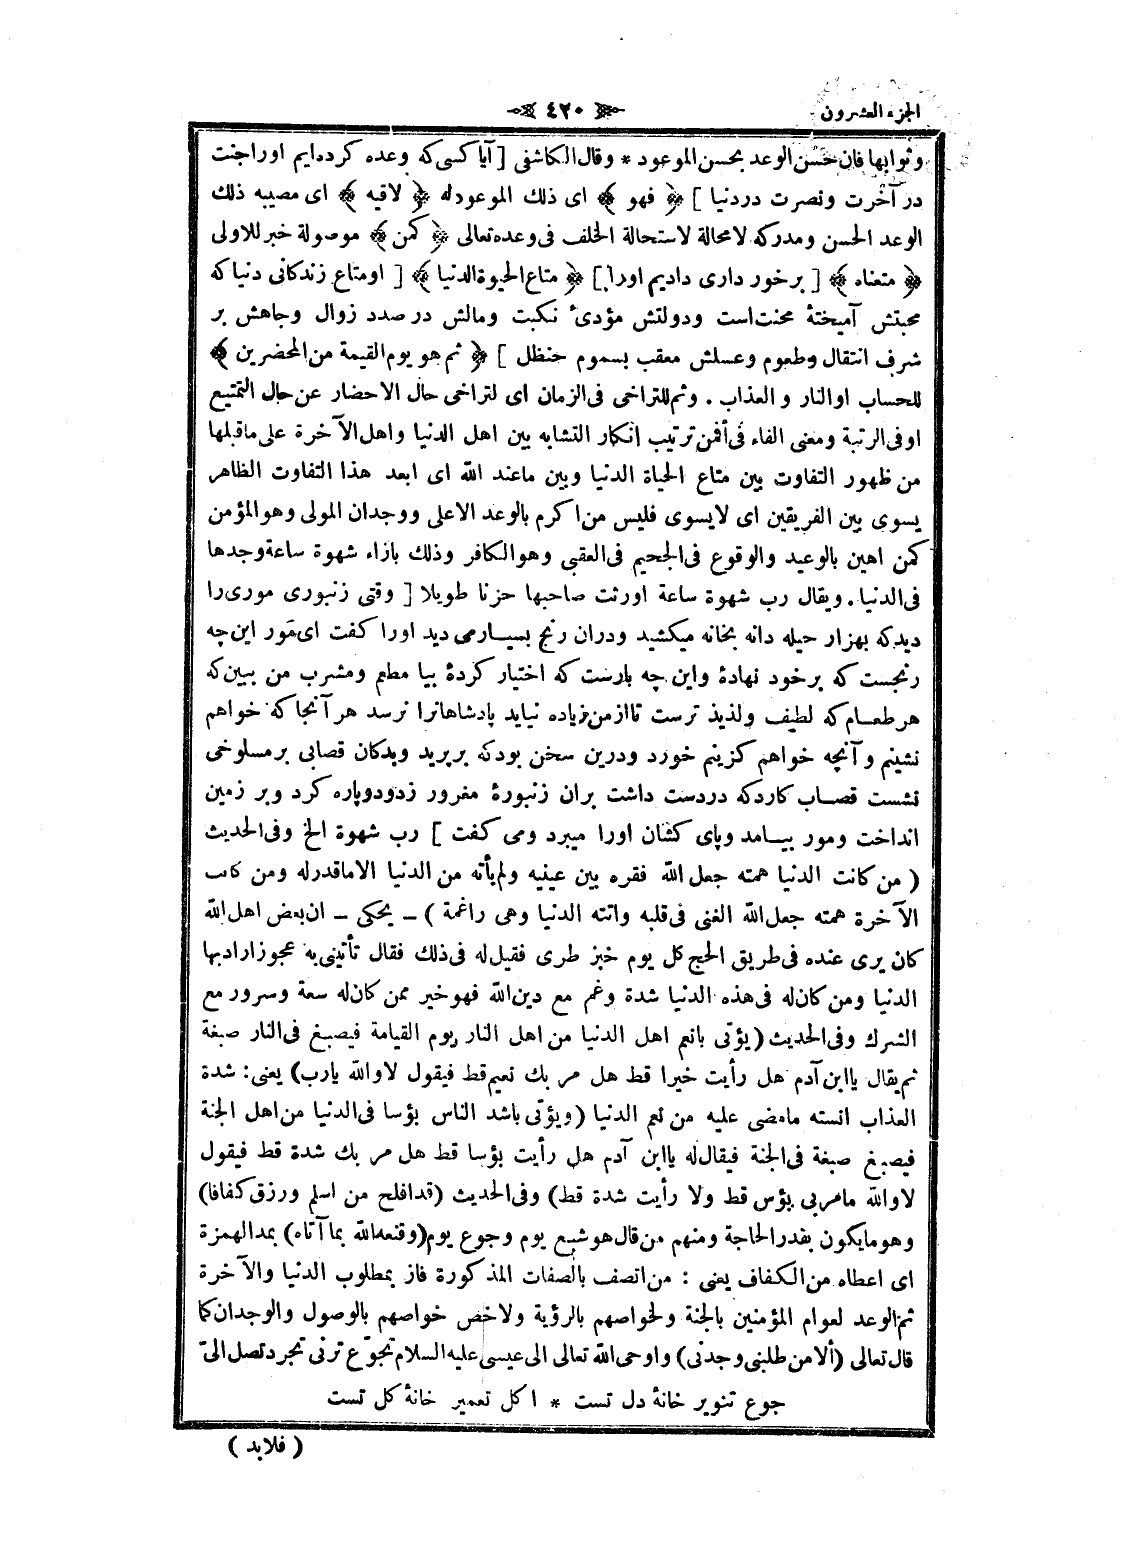 الجزء العشرون
٤٢٠
وثوابها فان حسن الوعد بحسن الموعود * وقال الكاشفى [ آيا كسى كه وعده كرده ايم اورا جنت
در آخرت ونصرت دردنيا ] ﴿ فهو ﴾ اى ذلك الموعودله ﴿ لاقيه ﴾ اى مصيبه ذلك
الوعد الحسن ومدركه لامحالة لاستحالة الخلف فى وعده تعالى ﴿ كمن ﴾ موصولة خبر للاولى
﴿ متعناه ﴾ [ برخور دارى داديم اورا ] ﴿ متاع الحيوة الدنيا ﴾ [ اومتاع زندكانى دنيا كه
محبتش آميختۀ محنت است ودولتش مؤدئ نكبت ومالش در صدد زوال وجاهش بر
شرف انتقال وطعوم وعسلش معقب بسموم حنظل ] ﴿ ثم هو يوم القيمة من المحضرين ﴾
للحساب اوالنار و العذاب . وثم للتراخى فى الزمان اى لتراخى حال الاحضار عن حال التمتيع
اوفى الرتبة ومعنى الفاء فى أفمن ترتيب انكار التشابه بين اهل الدنيا واهل الآخرة على ماقبلها
من ظهور التفاوت بين متاع الحياة الدنيا وبين ماعند الله اى ابعد هذا التفاوت الظاهر
يسوى بين الفريقين اى لايسوى فليس من اكرم بالوعد الاعلى ووجدان المولى وهوالمؤمن
كمن اهين بالوعيد والوقوع فى الجحيم فى العقبى وهوالكافر وذلك بازاء شهوة ساعة وجدها
فى الدنيا . ويقال رب شهوة ساعة اورثت صاحبها حزنا طويلا [ وقتى زنبورى مورى را
ديد كه بهزار حيله دانه بخانه ميكشيد ودران رنج بسيار مى ديد اورا كفت اى مور اين چه
رنجست كه بر خود نهادۀ واين چه بارست كه اختيار كردۀ بيا مطعم ومشرب من ببين كه
هر طعام كه لطيف ولذيذ ترست تا از من زياده نيايد پادشاهانرا نرسد هر آنجا كه خواهم
نشينم و آنچه خواهم كزينم خورد ودرين سخن بود كه بر پريد وبدكان قصابى بر مسلوخى
نشست قصاب كارد كه دردست داشت بران زنبورۀ مغرور زد ودوپاره كرد وبر زمين
انداخت ومور بيامد وپاى كشان اورا ميبرد ومى كفت ] رب شهوة الخ وفى الحديث
( من كانت الدنيا همته جعل الله فقره بين عينيه ولم يأته من الدنيا الا ماقدر له ومن كانت
الآخرة همته جعل الله الغنى فى قلبه واتته الدنيا وهى راغمة ) ـ يحكى ـ ان بعض اهل الله
كان يرى عنده فى طريق الحج كل يوم خبز طرى فقيل له فى ذلك فقال تأتينى به عجوز اراد بها
الدنيا ومن كان له فى هذه الدنيا شدة وغم مع دين الله فهو خير ممن كان له سعة وسرور مع
الشرك وفى الحديث ( يؤتى بانعم اهل الدنيا من اهل النار يوم القيامة فيصبغ فى النار صبغة
ثم يقال ياابن آدم هل رأيت خيرا قط هل مر بك نعيم قط فيقول لا والله يارب ) يعنى : شدة
العذاب انسته مامضى عليه من نعم الدنيا ( ويؤتى باشد الناس بؤسا فى الدنيا من اهل الجنة
فيصبغ صبغة فى الجنة فيقال له ياابن آدم هل رأيت بؤسا قط هل مر بك شدة قط فيقول
لا والله مامر بى بؤس قط ولا رأيت شدة قط ) وفى الحديث ( قد افلح من اسلم ورزق كفافا )
وهو مايكون بقدر الحاجة ومنهم من قال هو شبع يوم وجوع يوم ( وقنعه الله بما آتاه ) بمد الهمزة
اى اعطاه من الكفاف يعنى : من اتصف بالصفات المذكورة فاز بمطلوب الدنيا والآخرة
ثم الوعد لعوام المؤمنين بالجنة ولخواصهم بالرؤية ولاخص خواصهم بالوصول والوجدان كما
قال تعالى ( ألا من طلبنى وجدنى ) واوحى الله تعالى الى عيسى عليه السلام تجوّع ترنى تجرد تصل الىّ
جوع تنوير خانۀ دل تست * اكل تعمير خانۀ كل تست
( فلابد )